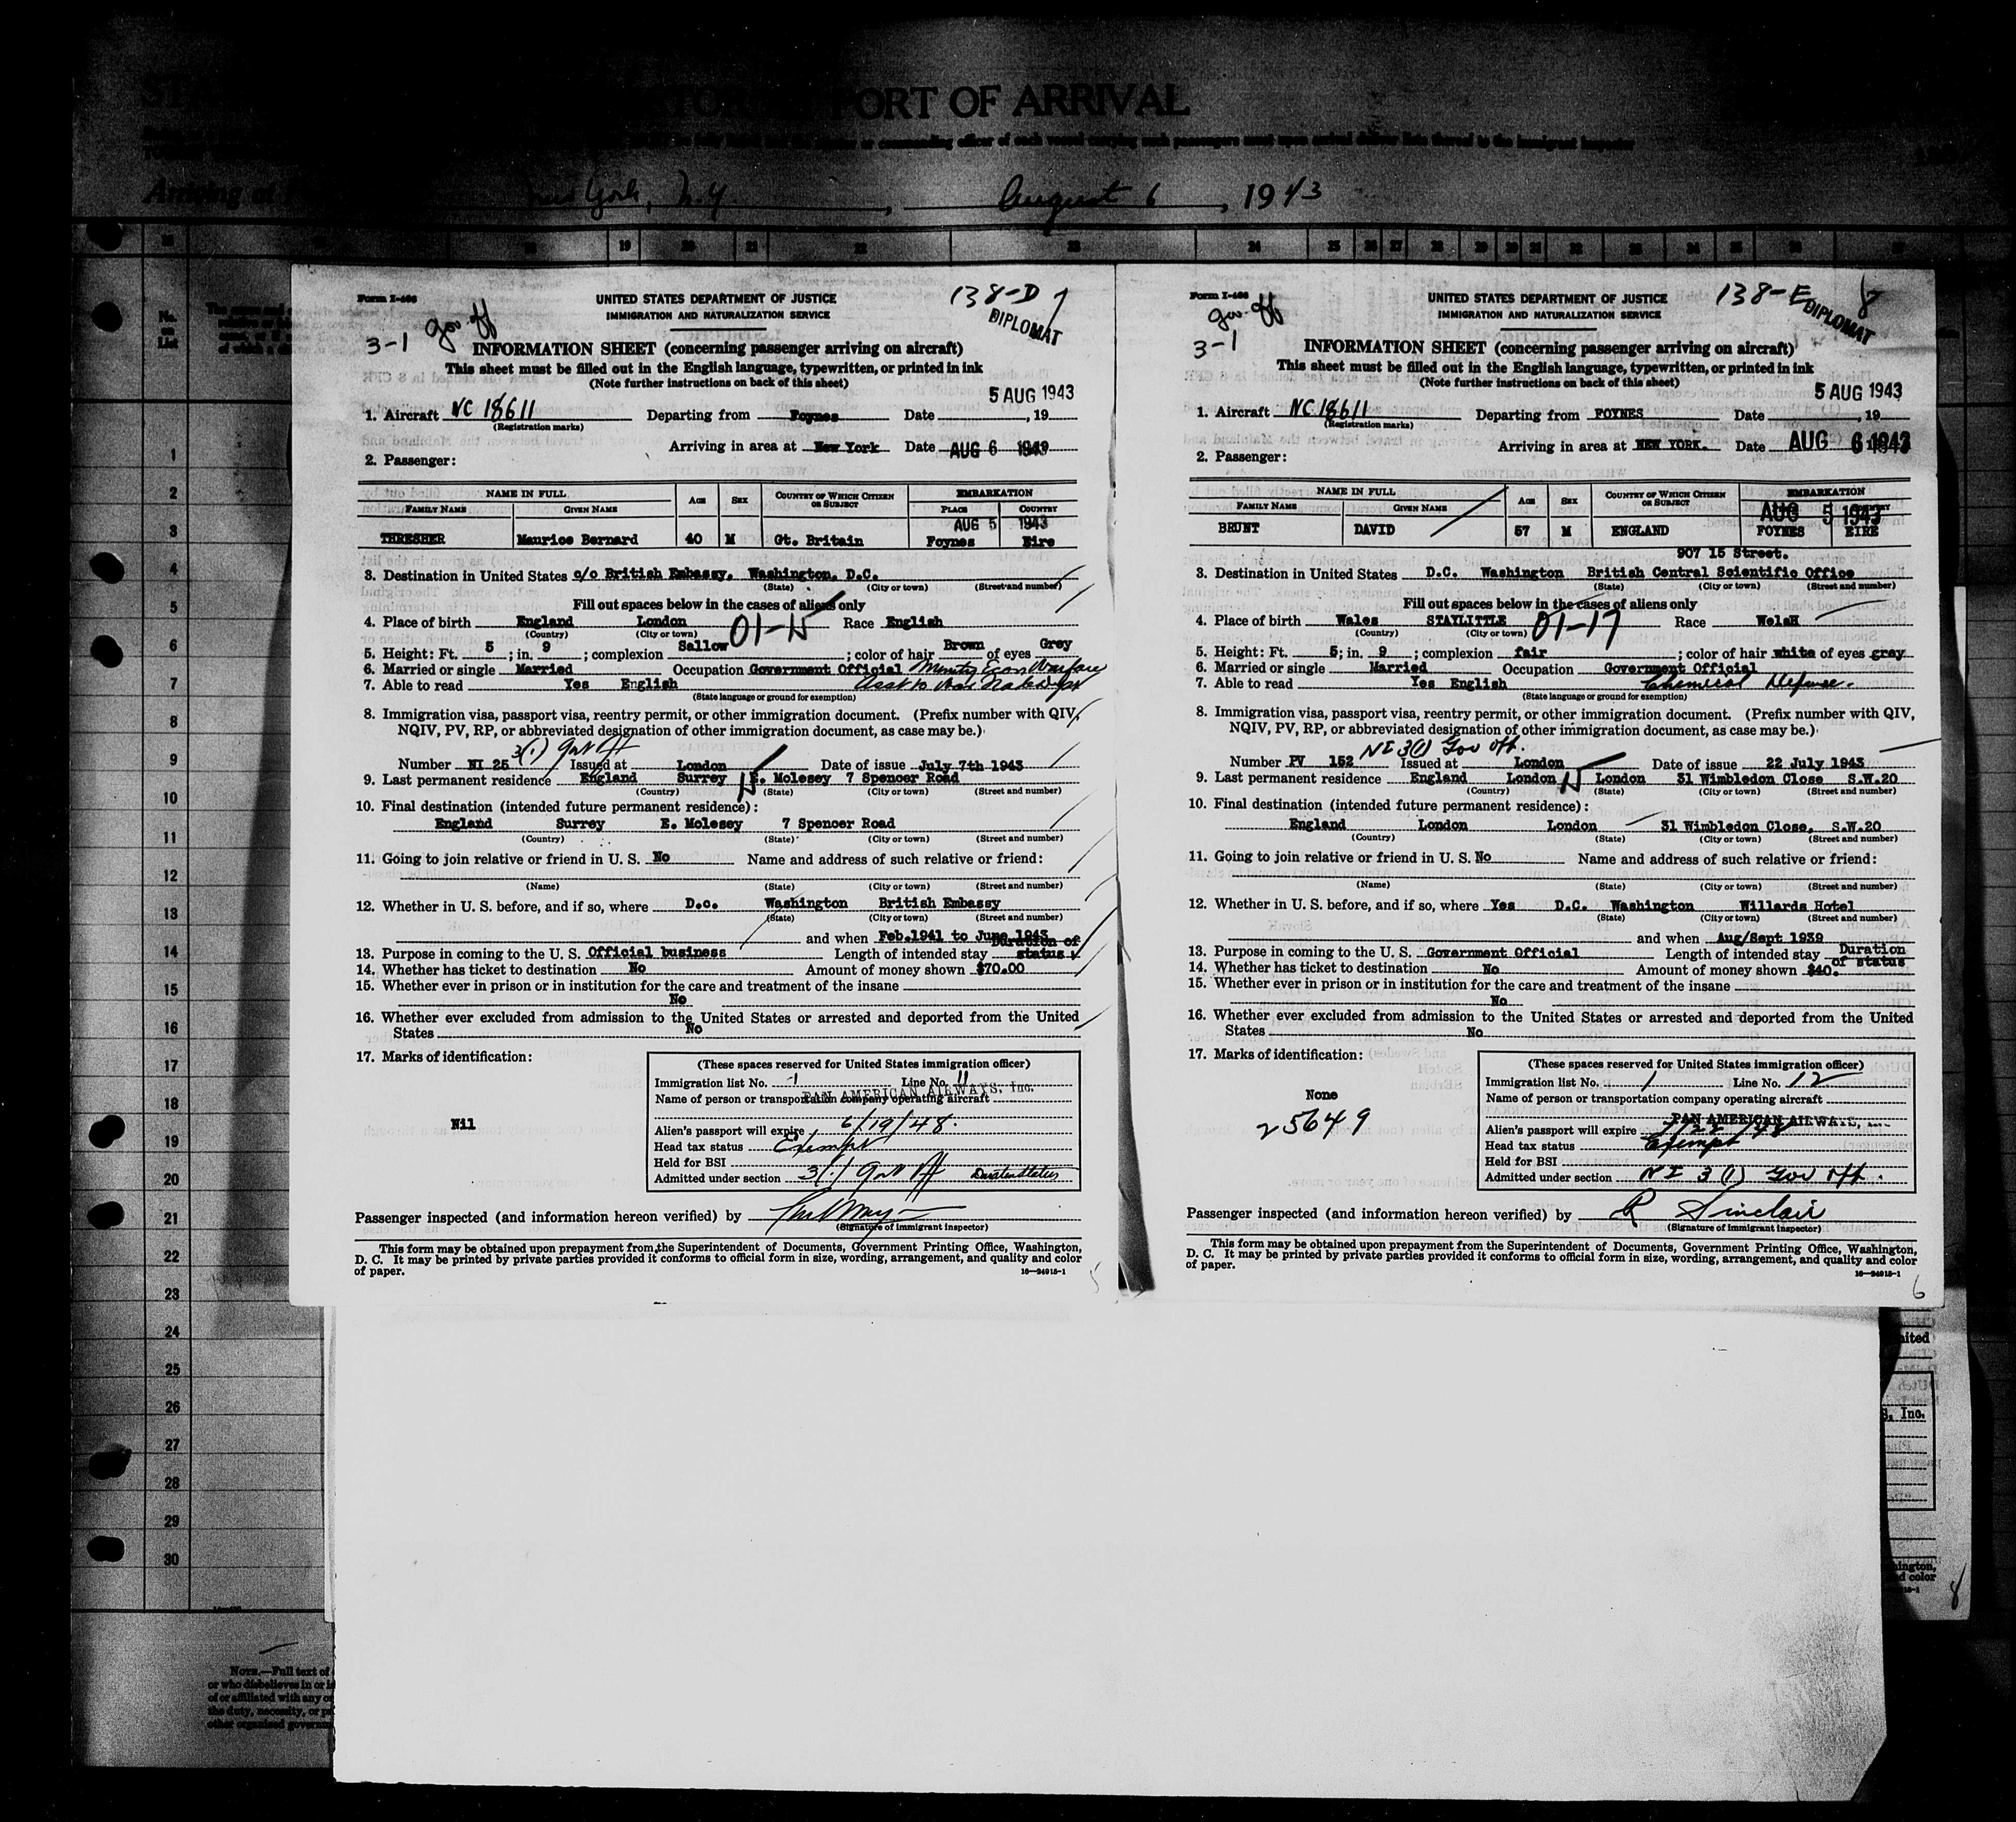 PORT OF ARRIVAL
New York, N.Y. , August 6 , 1943
19 20 21 22 23 24 25 26 27 28 29
No. on List
1
2
3
4
5
6
7
8
9
10
11
12
13
14
15
16
17
18
19
20
21
22
23
24
25
26
27
28
29
30
NOTE.—Full text of
or who disbelieves in or
of or affiliated with any
the duty, necessity, or
other organized governm
Form I-466
138-D 7
UNITED STATES DEPARTMENT OF JUSTICE
IMMIGRATION AND NATURALIZATION SERVICE
DIPLOMAT
3-1 gov off
INFORMATION SHEET (concerning passenger arriving on aircraft)
This sheet must be filled out in the English language, typewritten, or printed in ink
(Note further instructions on back of this sheet)
5 AUG 1943
1. Aircraft NC 18611 Departing from Foynes Date , 19
(Registration marks)
Arriving in area at New York Date AUG 6 1943
2. Passenger:
NAME IN FULL AGE SEX COUNTRY OF WHICH CITIZEN OR SUBJECT EMBARKATION
FAMILY NAME GIVEN NAME PLACE COUNTRY
AUG 5 1943
THRESHER Maurice Bernard 40 M Gt. Britain Foynes Eire
3. Destination in United States c/o British Embassy, Washington, D.C.
(State) (City or town) (Street and number)
Fill out spaces below in the cases of aliens only
4. Place of birth England London 01-15 Race English
(Country) (City or town)
5. Height: Ft. 5 ; in. 9 ; complexion Sallow ; color of hair Brown of eyes Grey
6. Married or single Married Occupation Government Official Ministry Econ Warfare
7. Able to read Yes English
(State language or ground for exemption)
8. Immigration visa, passport visa, reentry permit, or other immigration document. (Prefix number with QIV,
NQIV, PV, RP, or abbreviated designation of other immigration document, as case may be.)
3(1) gov off
Number NI 25 Issued at London Date of issue July 7th 1943
9. Last permanent residence England Surrey E. Molesey 7 Spencer Road
(Country) (State) (City or town) (Street and number)
10. Final destination (intended future permanent residence):
England Surrey E. Molesey 7 Spencer Road
(Country) (State) (City or town) (Street and number)
11. Going to join relative or friend in U. S. No Name and address of such relative or friend:
(Name) (State) (City or town) (Street and number)
12. Whether in U. S. before, and if so, where D.c. Washington British Embassy
(State) (City or town) (Street and number)
and when Feb.1941 to June 1943
13. Purpose in coming to the U. S. Official business Length of intended stay Duration of status
14. Whether has ticket to destination No Amount of money shown $70.00
15. Whether ever in prison or in institution for the care and treatment of the insane
No
16. Whether ever excluded from admission to the United States or arrested and deported from the United
States No
17. Marks of identification:
Nil
(These spaces reserved for United States immigration officer)
Immigration list No. 1 Line No. 11
Name of person or transportation company operating aircraft
PAN AMERICAN AIRWAYS, Inc.
Alien's passport will expire 6/19/48.
Head tax status Exempt
Held for BSI
Admitted under section 3(1) gov off Duration Status
Passenger inspected (and information hereon verified) by
(Signature of immigrant inspector)
This form may be obtained upon prepayment from the Superintendent of Documents, Government Printing Office, Washington,
D. C. It may be printed by private parties provided it conforms to official form in size, wording, arrangement, and quality and color
of paper.
16—24915-1
5
Form I-466
138-E 8
UNITED STATES DEPARTMENT OF JUSTICE
IMMIGRATION AND NATURALIZATION SERVICE
DIPLOMAT
3-1 gov. off
INFORMATION SHEET (concerning passenger arriving on aircraft)
This sheet must be filled out in the English language, typewritten, or printed in ink
(Note further instructions on back of this sheet)
5 AUG 1943
1. Aircraft NC 18611 Departing from FOYNES Date , 19
(Registration marks)
Arriving in area at NEW YORK. Date AUG 6 1943
2. Passenger:
NAME IN FULL AGE SEX COUNTRY OF WHICH CITIZEN OR SUBJECT EMBARKATION
FAMILY NAME GIVEN NAME
AUG 5 1943
BRUNT DAVID 57 M ENGLAND FOYNES EIRE
907 15 Street.
3. Destination in United States D.C. Washington British Central Scientific Office
(State) (City or town) (Street and number)
Fill out spaces below in the cases of aliens only
4. Place of birth Wales STAYLITTLE 01-17 Race WelsH
(Country) (City or town)
5. Height: Ft. 5; in. 9 ; complexion fair ; color of hair white of eyes gray
6. Married or single Married Occupation Government Official
7. Able to read Yes English Chemical Defense.
(State language or ground for exemption)
8. Immigration visa, passport visa, reentry permit, or other immigration document. (Prefix number with QIV,
NQIV, PV, RP, or abbreviated designation of other immigration document, as case may be.)
NI 3(1) Gov off.
Number PV 152 Issued at London Date of issue 22 July 1943
9. Last permanent residence England London London 31 Wimbledon Close S.W.20
(Country) (State) (City or town) (Street and number)
10. Final destination (intended future permanent residence):
England London London 31 Wimbledon Close, S.W.20
(Country) (State) (City or town) (Street and number)
11. Going to join relative or friend in U. S. No Name and address of such relative or friend:
(Name) (State) (City or town) (Street and number)
12. Whether in U. S. before, and if so, where Yes D.C. Washington Willards Hotel
(State) (City or town) (Street and number)
and when Aug/Sept 1939
13. Purpose in coming to the U. S. Government Official Length of intended stay Duration of status
14. Whether has ticket to destination No Amount of money shown $40.
15. Whether ever in prison or in institution for the care and treatment of the insane
No
16. Whether ever excluded from admission to the United States or arrested and deported from the United
States No
17. Marks of identification:
None
25649
(These spaces reserved for United States immigration officer)
Immigration list No. 1 Line No. 12
Name of person or transportation company operating aircraft
PAN AMERICAN AIRWAYS, INC
Alien's passport will expire
Head tax status Exempt
Held for BSI
Admitted under section NI 3 (1) Gov off.
Passenger inspected (and information hereon verified) by R Sinclair
(Signature of immigrant inspector)
This form may be obtained upon prepayment from the Superintendent of Documents, Government Printing Office, Washington,
D. C. It may be printed by private parties provided it conforms to official form in size, wording, arrangement, and quality and color
of paper.
16—24915-1
6
ited
S, Inc.
hington,
d color
8